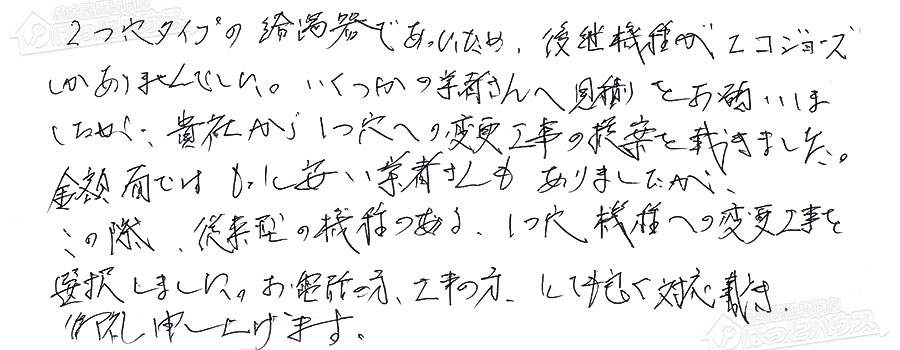 2つ穴タイプの給湯器であったため、後継機種がエコジョーズ
しかありませんでした。いくつかの業者さんへ見積りをお願いしま
したが、貴社から1つ穴への変更工事の提案を戴きました。
金額面ではもっと安い業者さんもありましたが、
この際、従来型の機種のある、1つ穴機種への変更工事を
選択しました。お電話の方、工事の方、とても良く対応戴き、
御礼申し上げます。
ほっとハウス